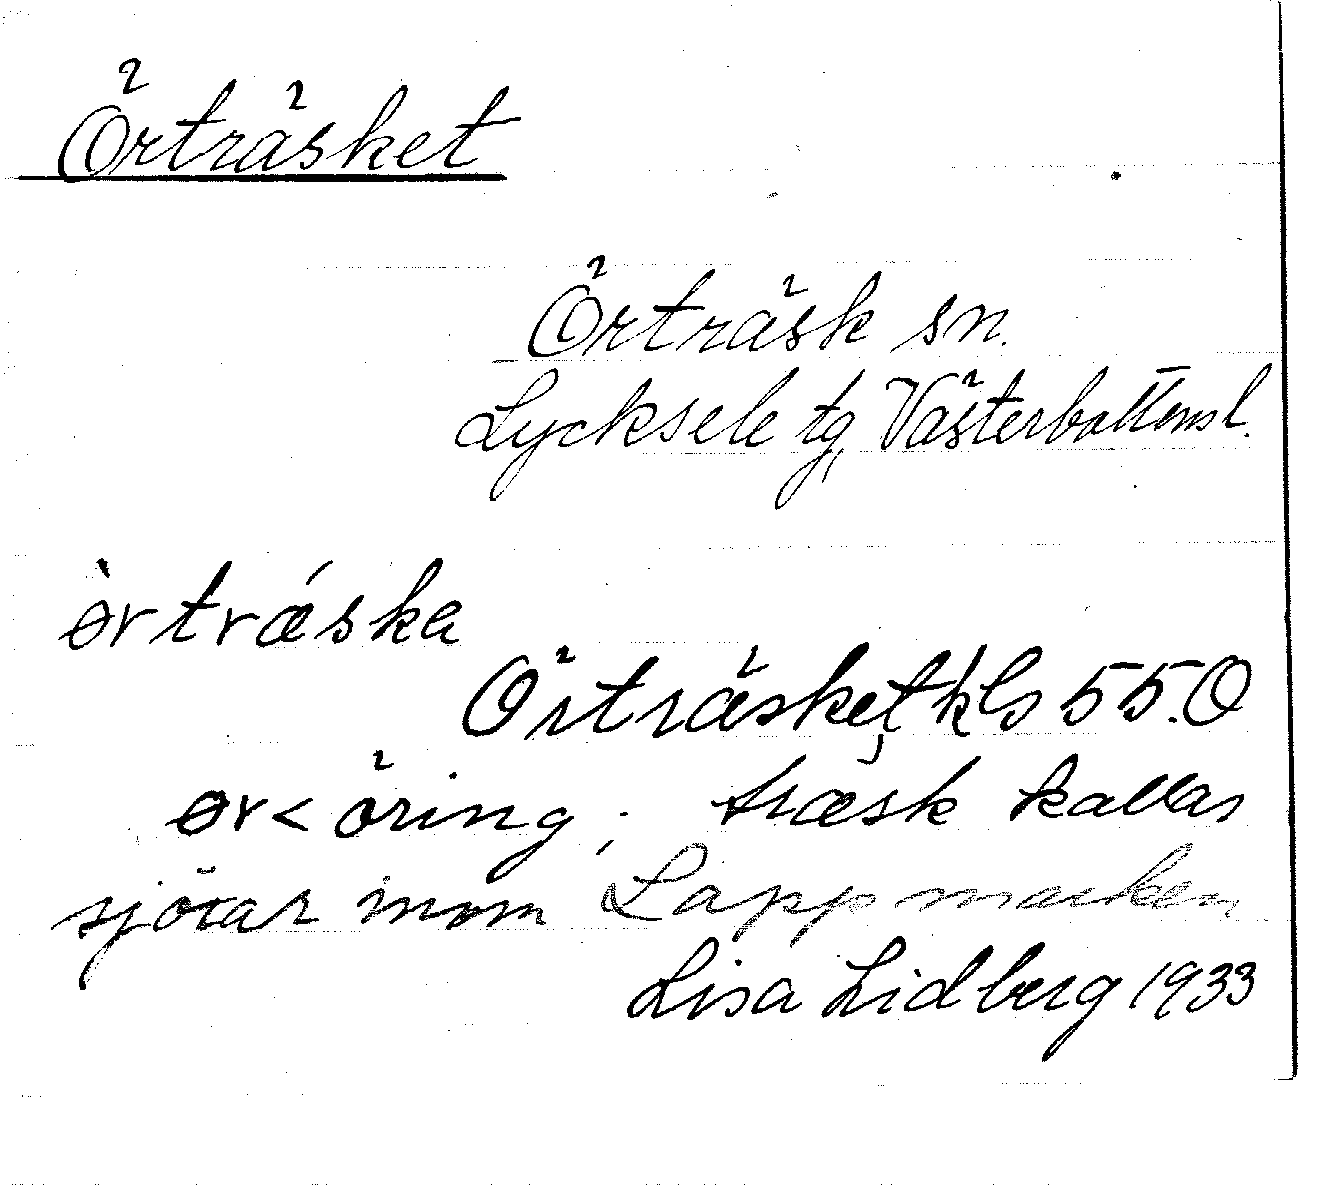 Örträsket
Örträsk sn.
Lycksele tg, Västerbottensl.
ɵ̀rtrǽska
Örträsket, kls 55.O
ɵr < öring; træsk kallas
sjöar inom Lappmarken
Lisa Lidberg 1933